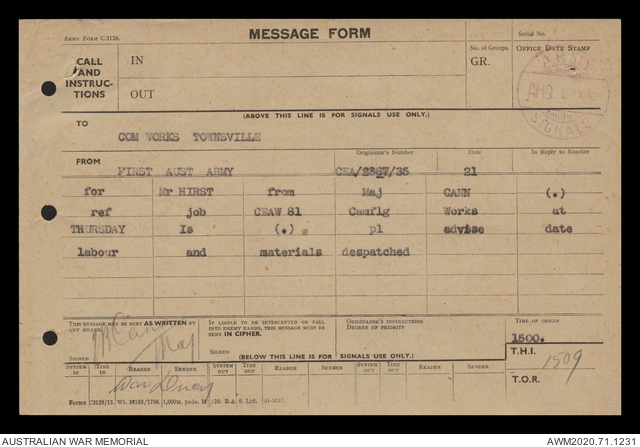 MESSAGE FORM
Army Form C.2128.
Serial No.
CALL AND INSTRUCTIONS
IN
OUT
No. of Groups. GR.
OFFICE DATE STAMP
AHQ
SIGNALS
(ABOVE THIS LINE IS FOR SIGNALS USE ONLY.)
TO
COM WORKS TOWNSVILLE
FROM Originator's Number Date In Reply to Number
FIRST AUST ARMY CEA/2367/35 21
for Mr HIRST from Maj CANN (.)
ref job CEAW 81 Camflg Works at
THURSDAY Is (.) pl advise date
labour and materials despatched
THIS MESSAGE MAY BE SENT AS WRITTEN BY ANY MEANS.
IF LIABLE TO BE INTERCEPTED OR FALL INTO ENEMY HANDS, THIS MESSAGE MUST BE SENT IN CIPHER.
ORIGINATOR'S INSTRUCTIONS DEGREE OF PRIORITY
TIME OF ORIGIN
1500.
SIGNED
McCann Maj
SIGNED
(BELOW THIS LINE IS FOR SIGNALS USE ONLY.)
T.H.I.
1509
SYSTEM IN TIME IN READER SENDER SYSTEM OUT TIME OUT READER SENDER SYSTEM OUT TIME OUT READER SENDER
T.O.R.
Forms C2128/13.
AUSTRALIAN WAR MEMORIAL
AWM2020.71.1231